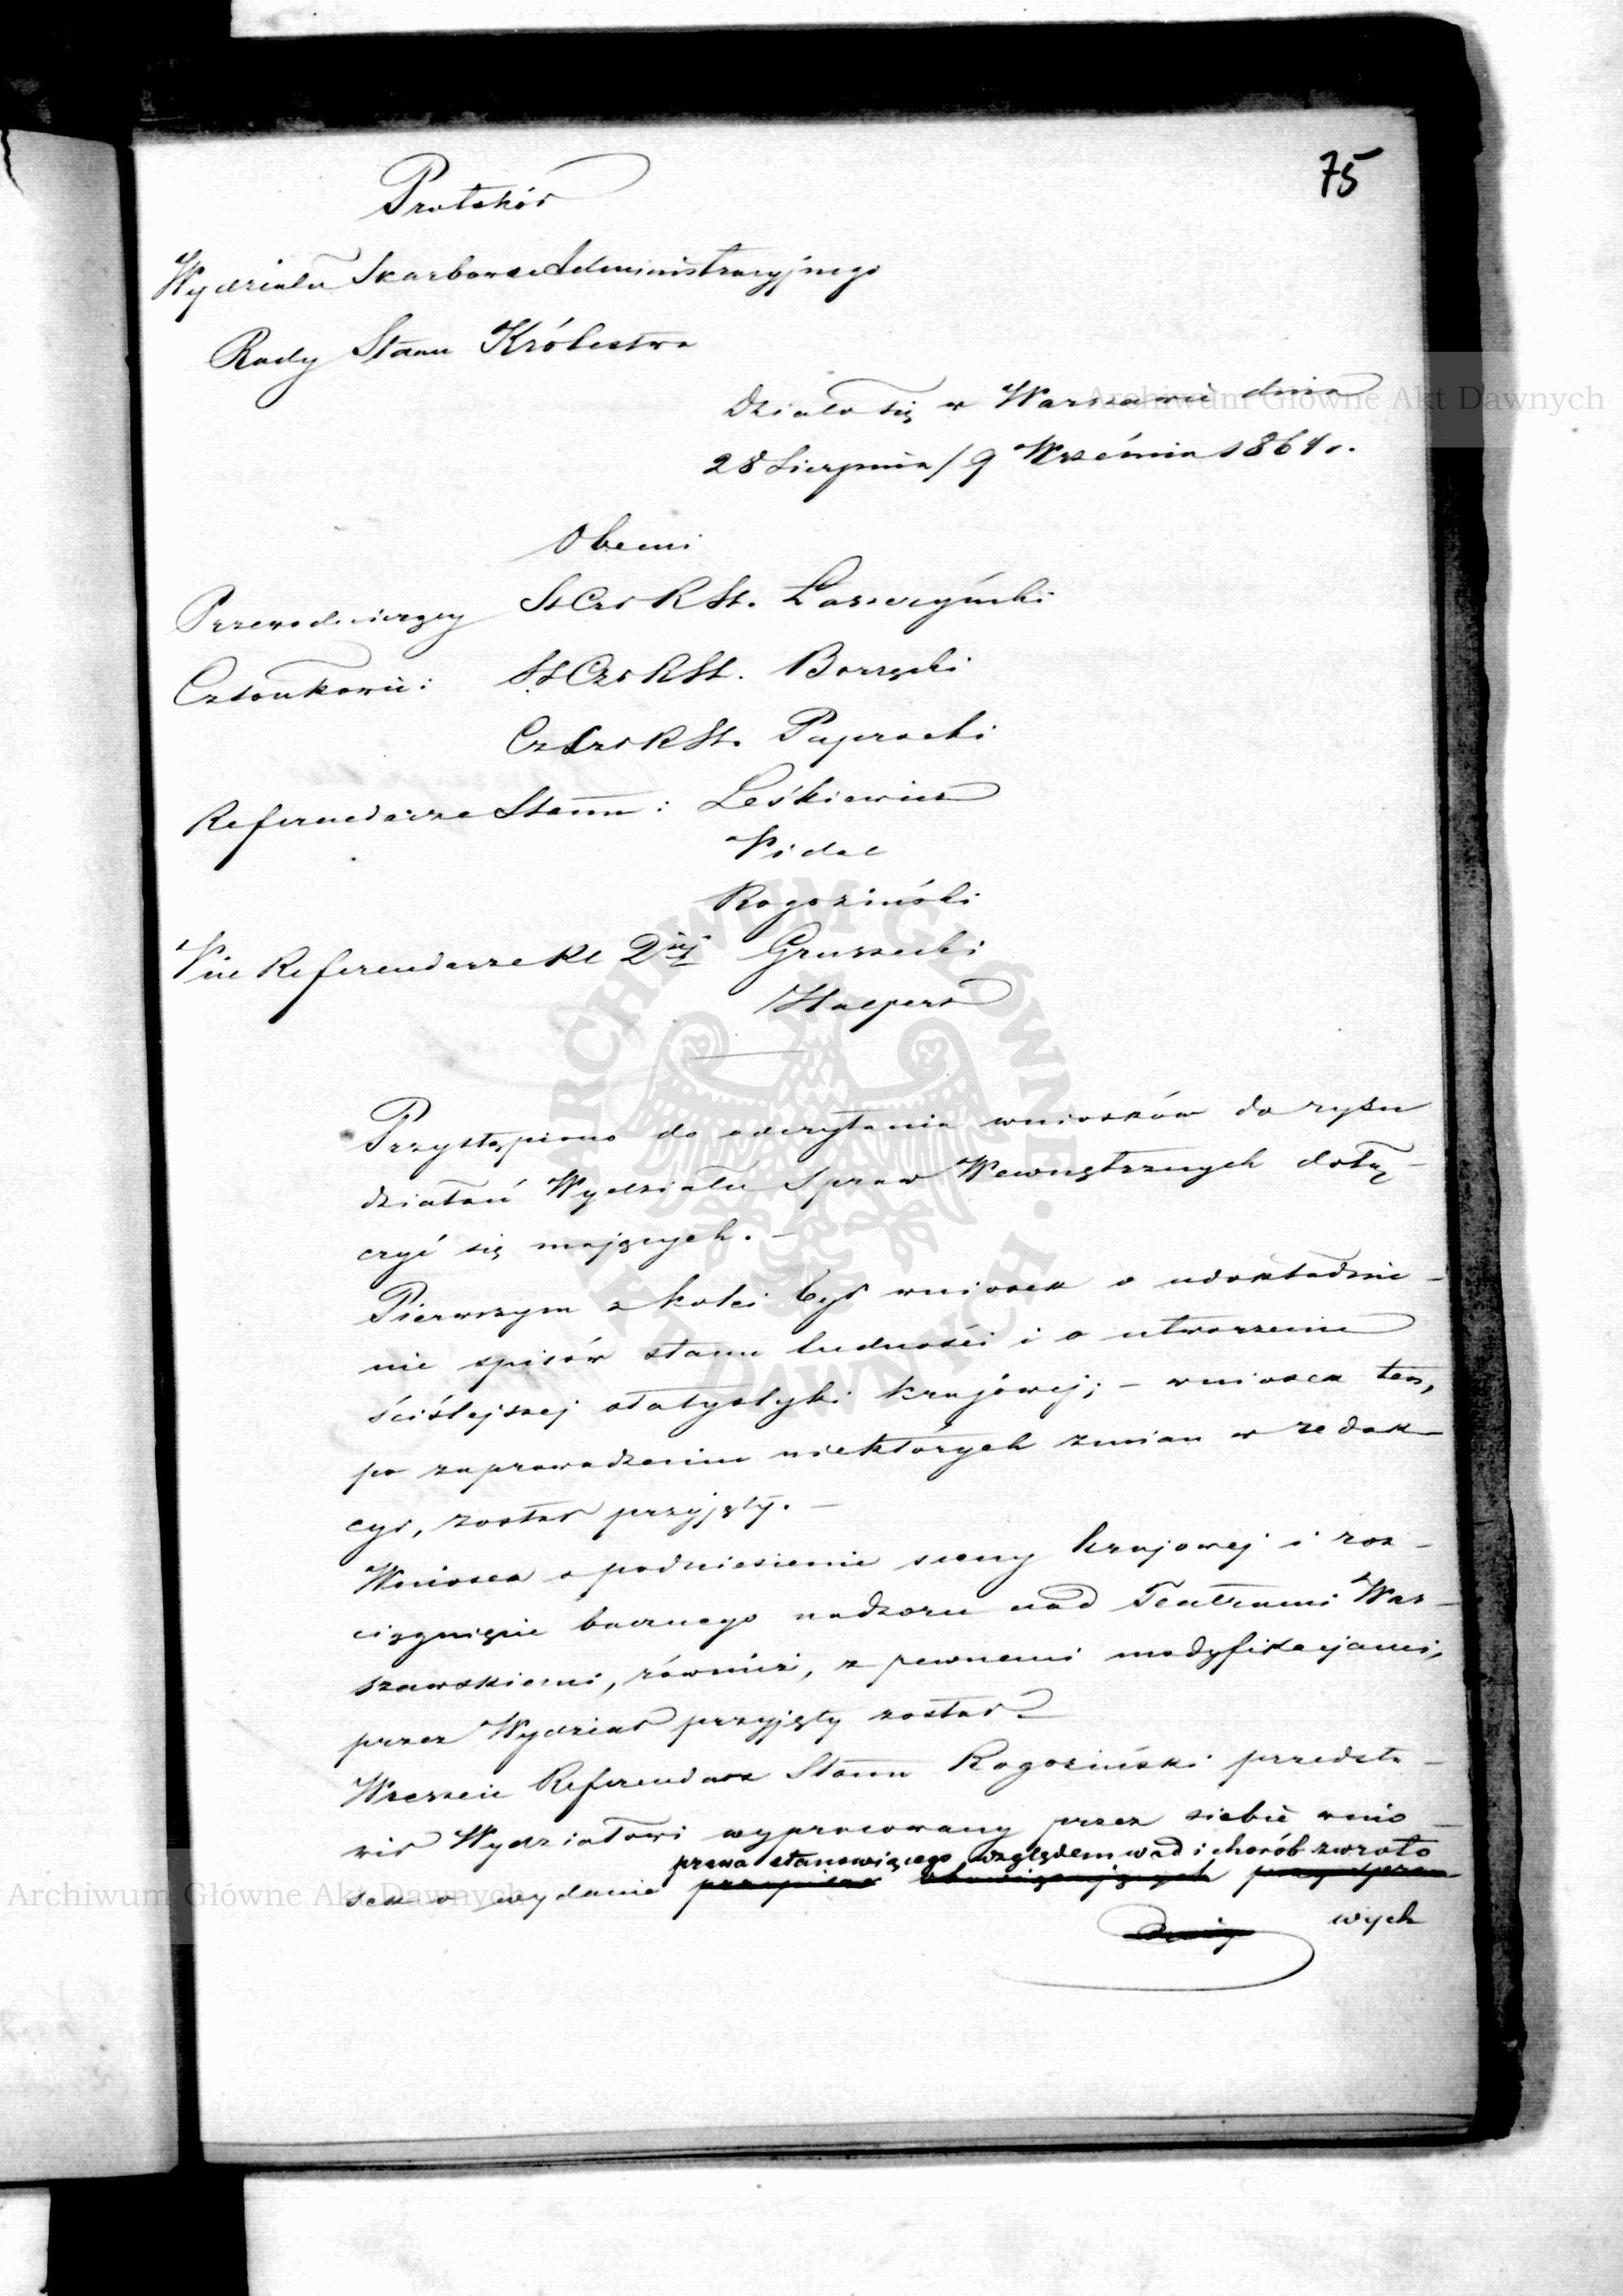 75
Protokół
Wydziału Skarbowo Administracyjnego
Rady Stanu Królestwa
Działo się w Warszawie dnia
28 Sierpnia / 9 Września 1864 r.
Obecni
Przewodniczący St Czł R St. Łaszczyński
Członkowie: St Czł R St. Borzęcki
Cz Czł R St. Paprocki
Referendarze Stanu: Leśkiewicz
Vidal
Rogoziński
Vice Referendarze Kl 2iej Gruszecki
Halpert
Przystąpiono do odczytania wniosków do rysu
działań Wydziału Spraw Wewnętrznych dołą-
czyć się mających. —
Pierwszym z kolei był wniosek o udokładnie-
nie spisów stanu ludności i o utworzenie
ściślejszej statystyki krajowej; — wniosek ten,
po zaprowadzeniu niektórych zmian w redak-
cyi, został przyjęty. —
Wniosek o podniesienie sceny krajowej i roz-
ciągnięcie bacznego nadzoru nad Teatrami War-
szawskiemi, również, z pewnemi modyfikacjami,
przez Wydział przyjęty został. —
Wreszcie Referendarz Stanu Rogoziński przedsta-
wił Wydziałowi wypracowany przez siebie wnio-
prawa stanowiącego względem wad i chorób zwroto
sek o wydanie przepisów obowiązujących przy sprze
wych
Archiwum Główne Akt Dawnych
Archiwum Główne Akt Dawnych
ARCHIWUM GŁÓWNE AKT DAWNYCH